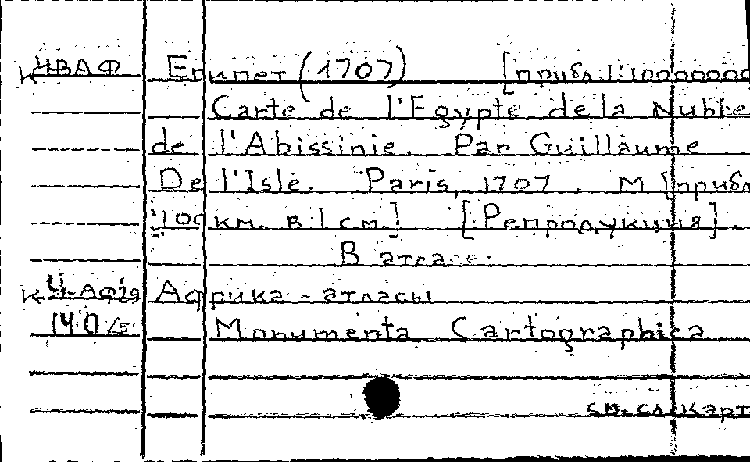 Египет (1707) [прибл. 1:10000000
Carte de l'Egypte de la Nubie
de l'Abissinie. Par Guillaume
De l'Isle. Paris, 1707. М [прибл.
100 км. в 1 см.] [Репродукция].
В атласе:
Африка - атласы
Monumenta Cartographica
см. сл. карт